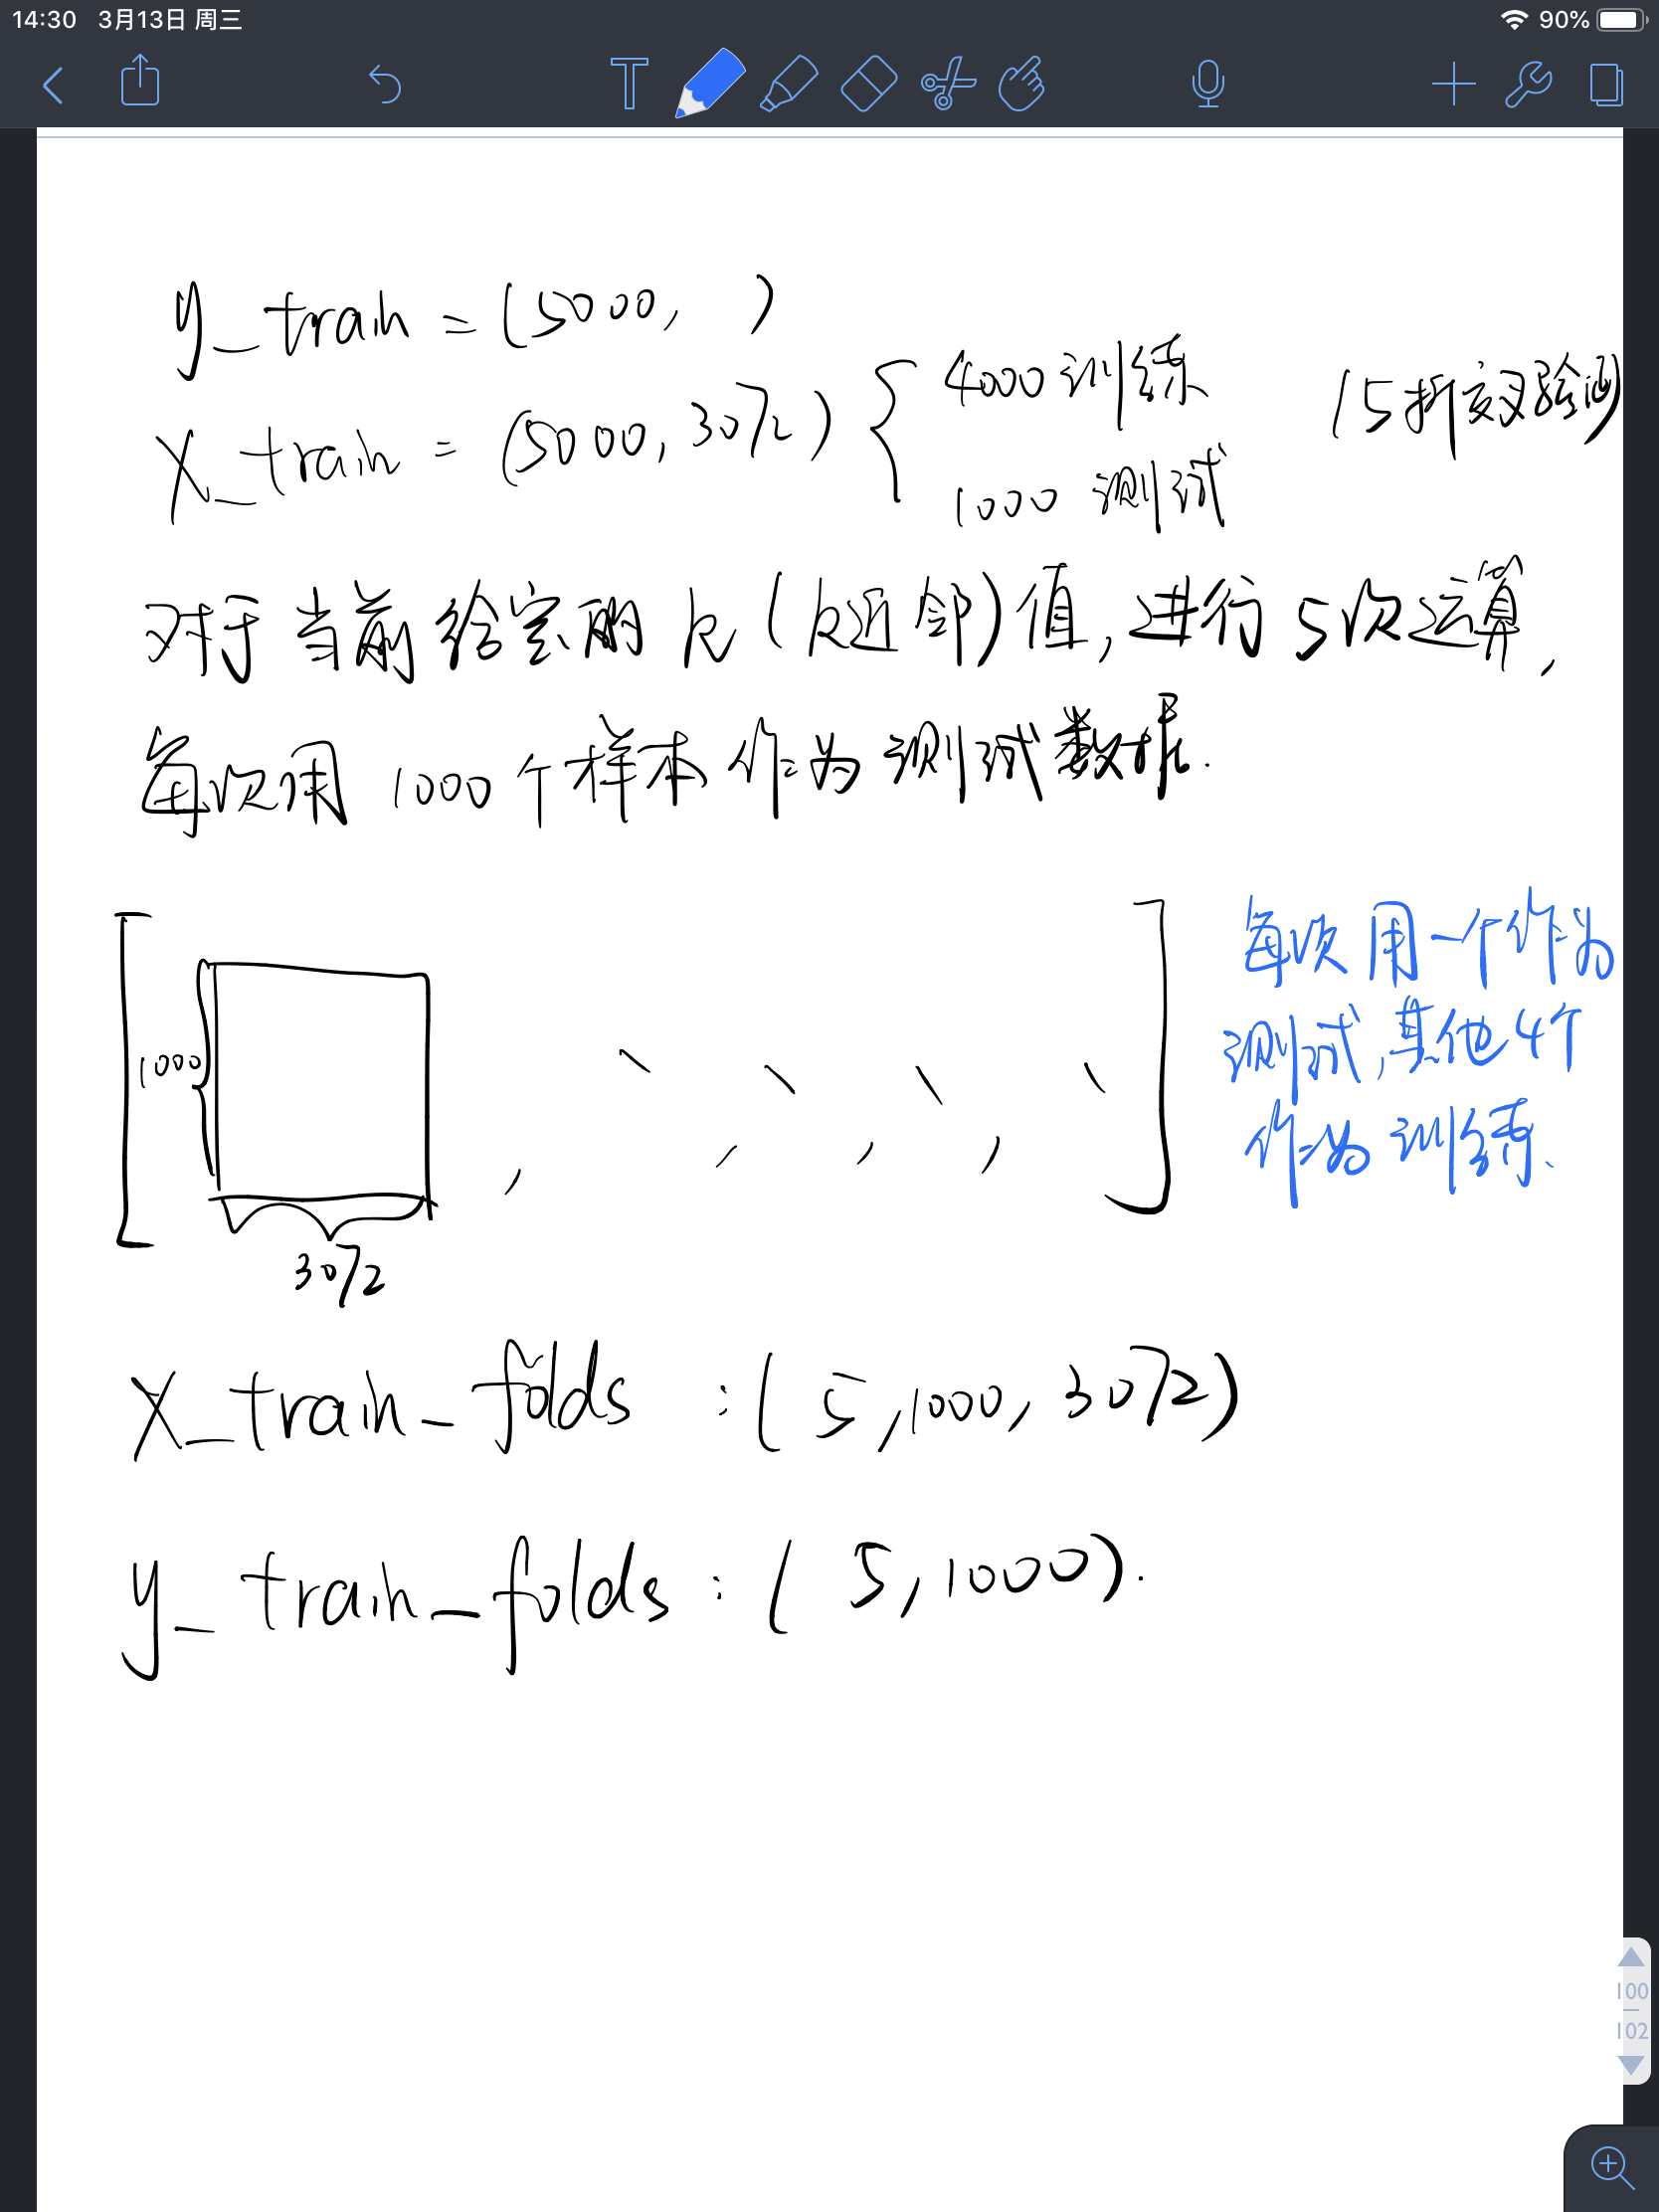 14:30 3月13日 周三 90%
y_train = (5000, )
X_train = (5000, 3072) { 4000 训练 (5折交叉验证)
1000 测试
对于当前给定的 k (k近邻) 值, 进行 5次运算,
每次用 1000 个样本 作为 测试数据.
每次用一个作为
测试, 其他4个
作为 训练、
1000
3072
X_train_folds : ( 5, 1000, 3072)
y_train_folds : ( 5, 1000).
100
102